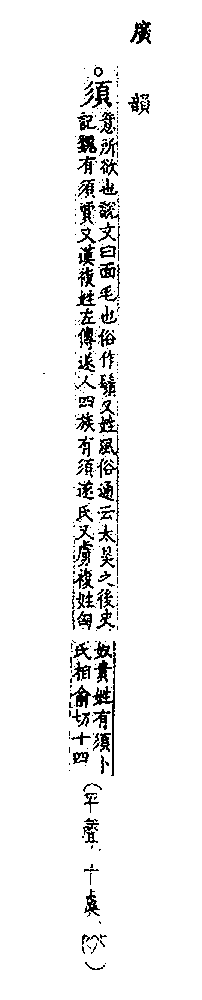 廣韻
。須
意所欲也說文曰面毛也俗作鬚又姓風俗通云太昊之後史
記魏有須賈又漢複姓左傳遂人四族有須遂氏又虜複姓匈
奴貴姓有須卜
氏相俞切十四
(平聲、十虞、)